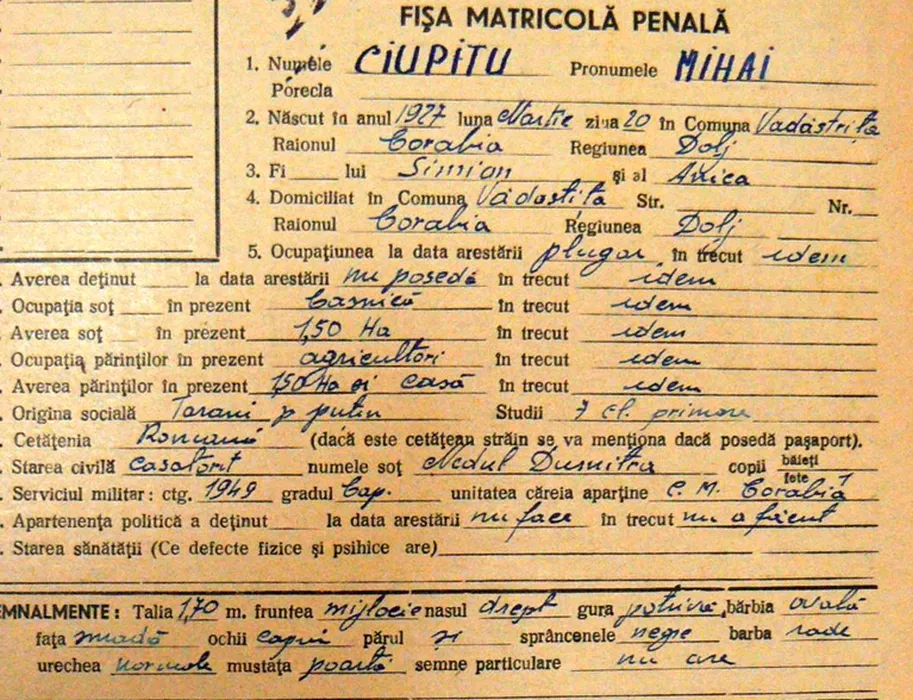 FIŞA MATRICOLĂ PENALĂ
1. Numele CIUPITU Pronumele MIHAI
Porecla
2. Născut în anul 1927 luna Martie ziua 20 în Comuna Vadăstrița
Raionul Corabia Regiunea Dolj
3. Fi lui Simion şi al Anica
4. Domiciliat în Comuna Vădastița Str. Nr.
Raionul Corabia Regiunea Dolj
5. Ocupaţiunea la data arestării plugar în trecut idem
Averea deţinut la data arestării nu posedă în trecut idem
Ocupaţia soţ în prezent Casnică în trecut idem
Averea soţ în prezent 1,50 Ha în trecut idem
Ocupaţia părinţilor în prezent agricultori în trecut idem
Averea părinţilor în prezent 1,50 Ha și casă în trecut idem
Origina socială Țarani p puțin Studii 7 cl. primare
Cetăţenia Română (dacă este cetăţean străin se va menţiona dacă posedă paşaport).
Starea civilă Casatorit numele soţ Nedul Dumitra copii băieţi
fete 1
Serviciul militar: ctg. 1949 gradul Cap. unitatea căreia aparţine C. M. Corabia
Apartenenţa politică a deţinut la data arestării nu face în trecut nu a făcut
Starea sănătăţii (Ce defecte fizice şi psihice are)
EMNALMENTE: Talia 1,70 m. fruntea mijlocie nasul drept gura potrivi bărbia ovală
faţa smadă ochii caprui părul și sprâncenele negre barba rade
urechea normale mustaţa poartă semne particulare nu are